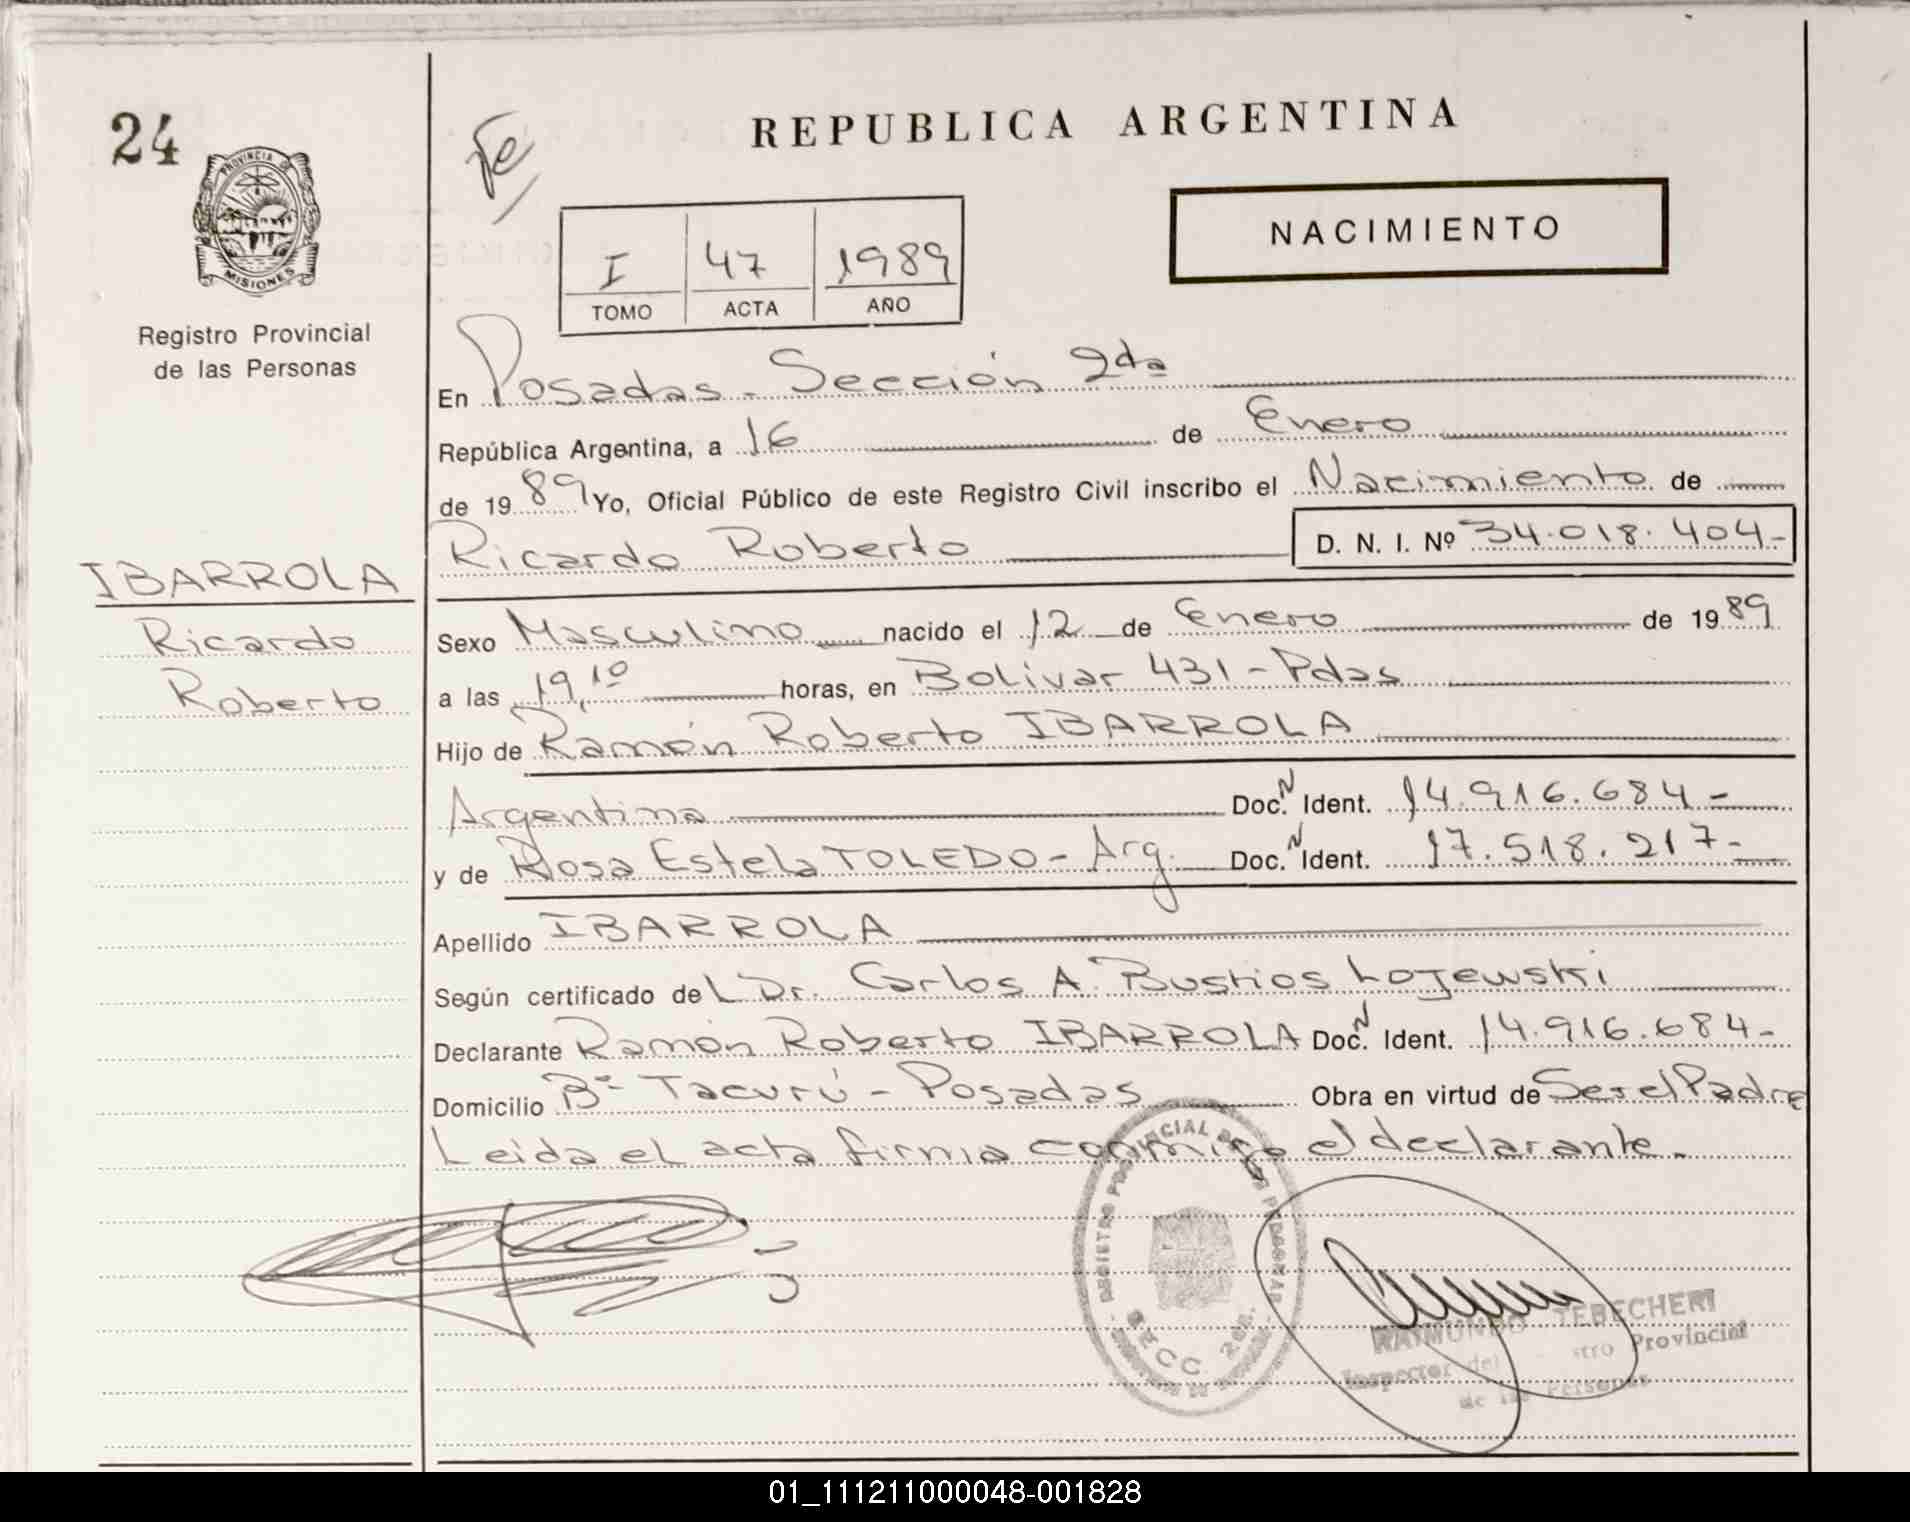 24
PROVINCIA DE
MISIONES
Registro Provincial
de las Personas
IBARROLA
Ricardo
Roberto
REPUBLICA ARGENTINA
NACIMIENTO
I 47 1989
TOMO ACTA AÑO
En Posadas - Sección 2da
República Argentina, a 16 de Enero
de 1989 Yo, Oficial Público de este Registro Civil inscribo el Nacimiento de
Ricardo Roberto D. N. I. Nº 34.018.404-
Sexo Masculino nacido el 12 de Enero de 1989
a las 19,10 horas, en Bolivar 431 - Pdas
Hijo de Ramón Roberto IBARROLA
Argentina Doc. N Ident. 14.916.684-
y de Rosa Estela TOLEDO - Arg. Doc. N Ident. 17.518.217-
Apellido IBARROLA
Según certificado del Dr. Carlos A. Bustios Lojewski
Declarante Ramón Roberto IBARROLA Doc. N Ident. 14.916.684-
Domicilio Bº Tacurú - Posadas Obra en virtud de Ser el Padre
Leida el acta firma conmigo el declarante.
SECC. 2da.
RAIMUNDO TEBECHERI
Inspector del stro Provincial
de las Personas
01_111211000048-001828